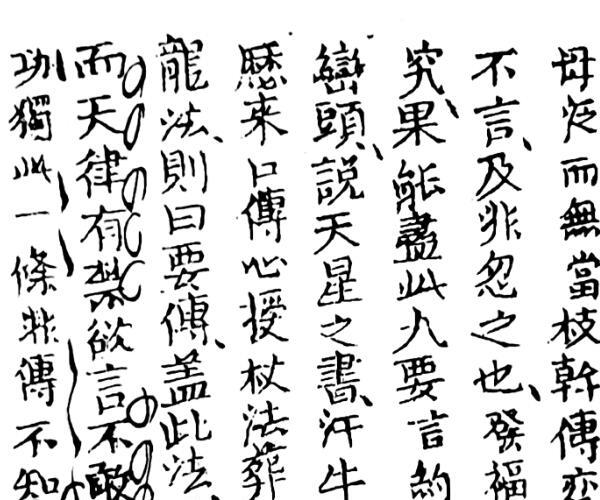 母泛而無當枝幹傳變
不言及非忽之也發福
究果能盡此九要言約
巒頭說天星之書汗牛
歷來口傳心授杖法葬
龍法則曰要傳盖此法
而天律有禁欲言不敢
功獨此一條非傳不知